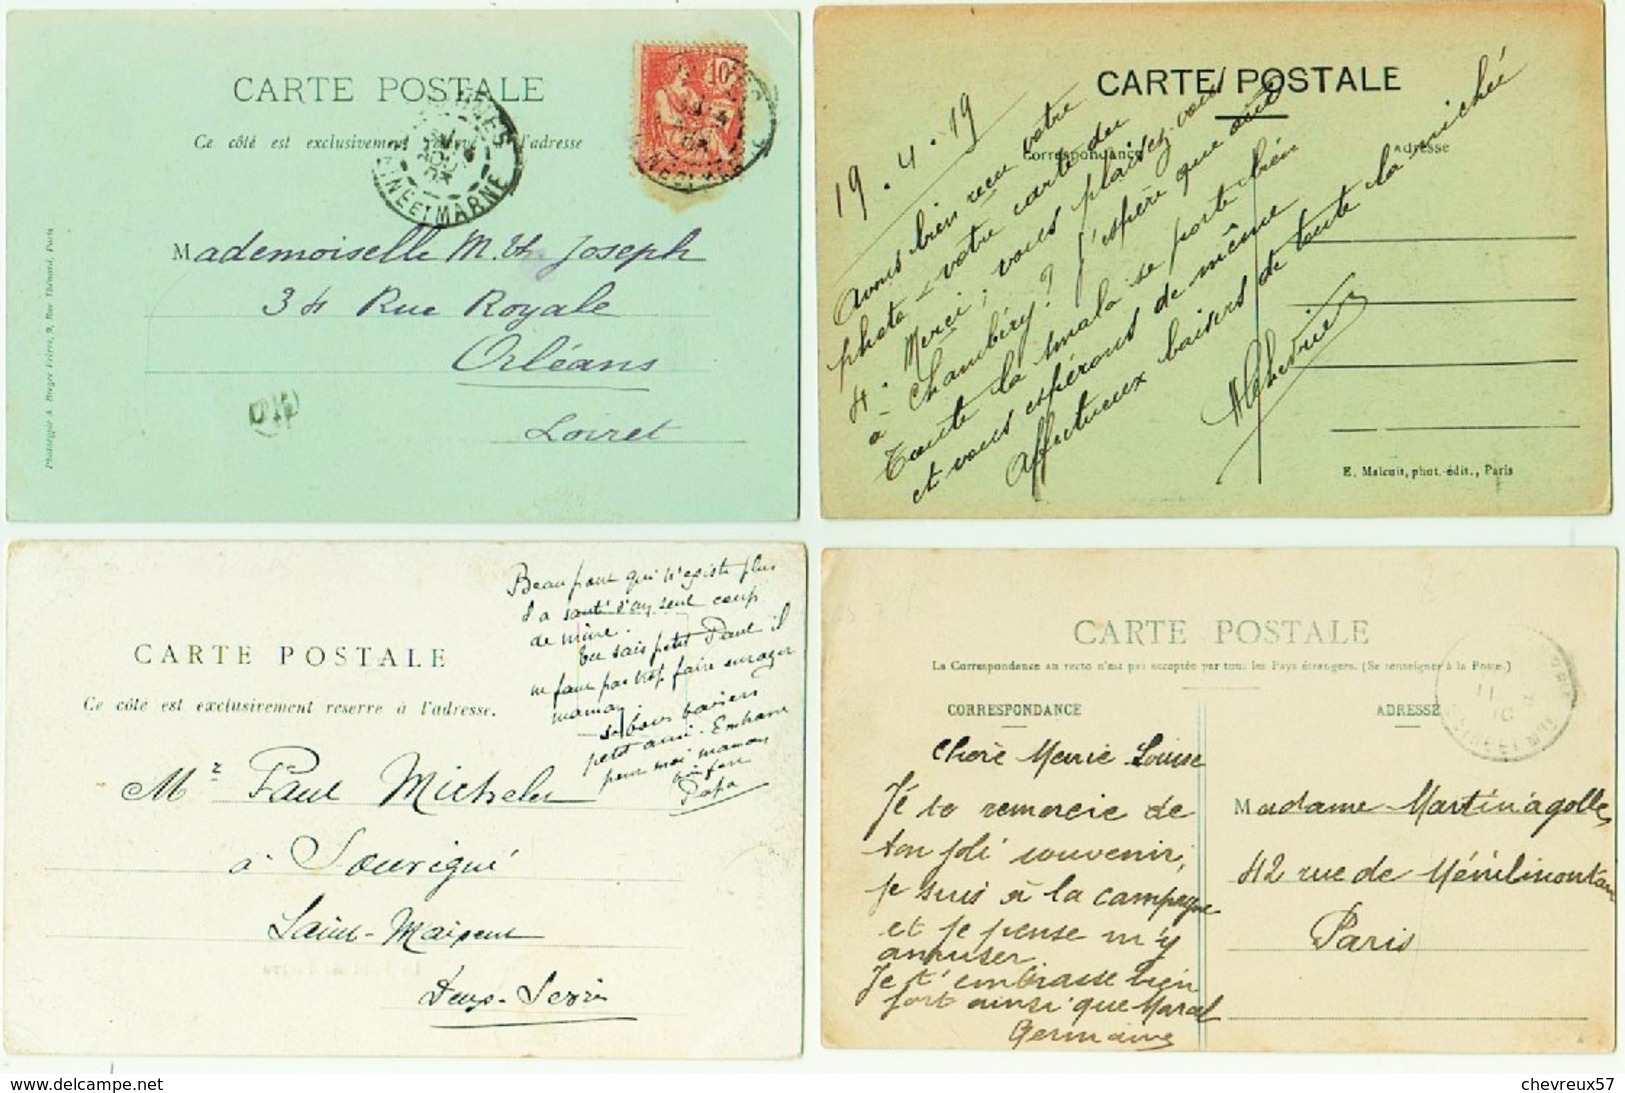 CARTE POSTALE
Ce côté est exclusivement réservé à l'adresse
10
SEINE ET MARNE
Mademoiselle M. Th. Joseph
34 Rue Royale
Orléans
Loiret
Phototypie A. Breger Frères, 9, Rue Thénard, Paris
CARTE POSTALE
Correspondance
Adresse
19.4.19
Avons bien reçu votre
photo - votre carte du
4. Merci; vous plaisez-vous
à Chambéry? J'espère que
Toute la smala se porte bien
et vous espérons de même
Affectueux baisers de toute la nichée
E. Malcuit, phot.-édit., Paris
CARTE POSTALE
Ce côté est exclusivement reserre à l'adresse.
Beau pont qui n'existe plus
il a sauté d'un seul coup
de mine.
Tu sais petit Paul il
ne faut pas trop faire enrager
maman.
bons baisers
petit ami. Embrasse
pour moi maman
Papa
Mr Paul Michelet
à Souvigné
Saint-Maixent
Deux-Sèvres
CARTE POSTALE
La Correspondance au recto n'est pas acceptée par tous les Pays étrangers. (Se renseigner à la Poste.)
CORRESPONDANCE
ADRESSE
Chère Marie Louise
Je te remercie de
ton joli souvenir,
je suis à la campagne
et je pense m'y
amuser.
Je t'embrasse bien
fort ainsi que Marcel
Germaine
Madame Martinagolle
42 rue de Ménilmontant
Paris
www.delcampe.net
chevreux57